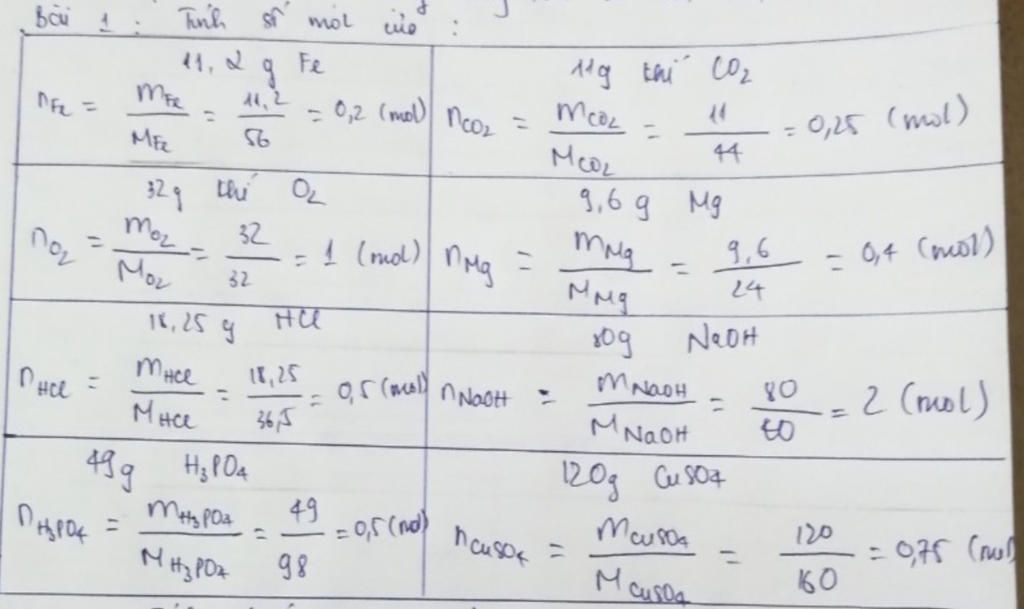 Bài 1 : Tính số mol của :
11,2 g Fe
nFe = mFe / MFe = 11,2 / 56 = 0,2 (mol)
11g khí CO2
nCO2 = mCO2 / MCO2 = 11 / 44 = 0,25 (mol)
32g khí O2
nO2 = mO2 / MO2 = 32 / 32 = 1 (mol)
9,6 g Mg
nMg = mMg / MMg = 9,6 / 24 = 0,4 (mol)
18,25 g HCl
nHCl = mHCl / MHCl = 18,25 / 36,5 = 0,5 (mol)
80g NaOH
nNaOH = mNaOH / MNaOH = 80 / 40 = 2 (mol)
49g H3PO4
nH3PO4 = mH3PO4 / MH3PO4 = 49 / 98 = 0,5 (mol)
120g CuSO4
nCuSO4 = mCuSO4 / MCuSO4 = 120 / 160 = 0,75 (mol